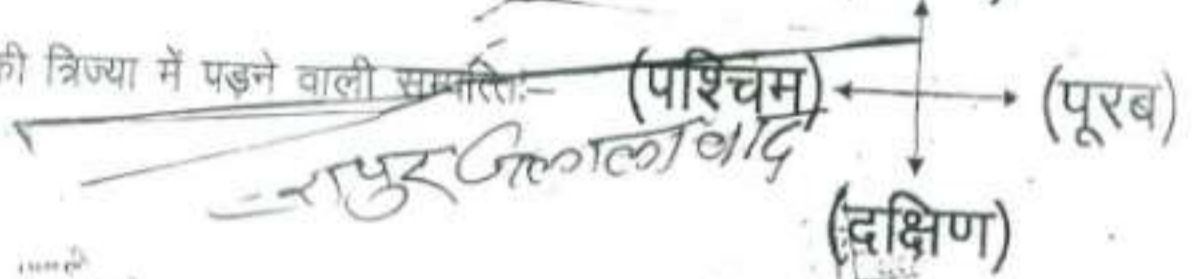 की त्रिज्या में पड़ने वाली सम्पत्ति:- (पश्चिम) (पूरब)
जलालाबाद
(दक्षिण)